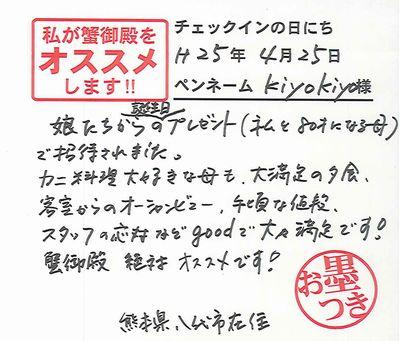 私が蟹御殿を
オススメ
します!!
チェックインの日にち
H25年4月25日
ペンネーム kiyokiyo様
誕生日
娘たちからのプレゼント(私と80才になる母)
で招待されました。
カニ料理大好きな母も、大満足の夕食、
客室からのオーシャンビュー、手頃な値段、
スタッフの応対などgoodで大々満足です!
蟹御殿 絶対 オススメです!
お墨つき
熊本県八代市在住